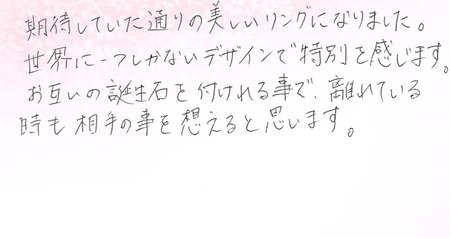 期待していた通りの美しいリングになりました。
世界に一つしかないデザインで特別を感じます。
お互いの誕生石を付けれる事で、離れている
時も相手の事を想えると思います。